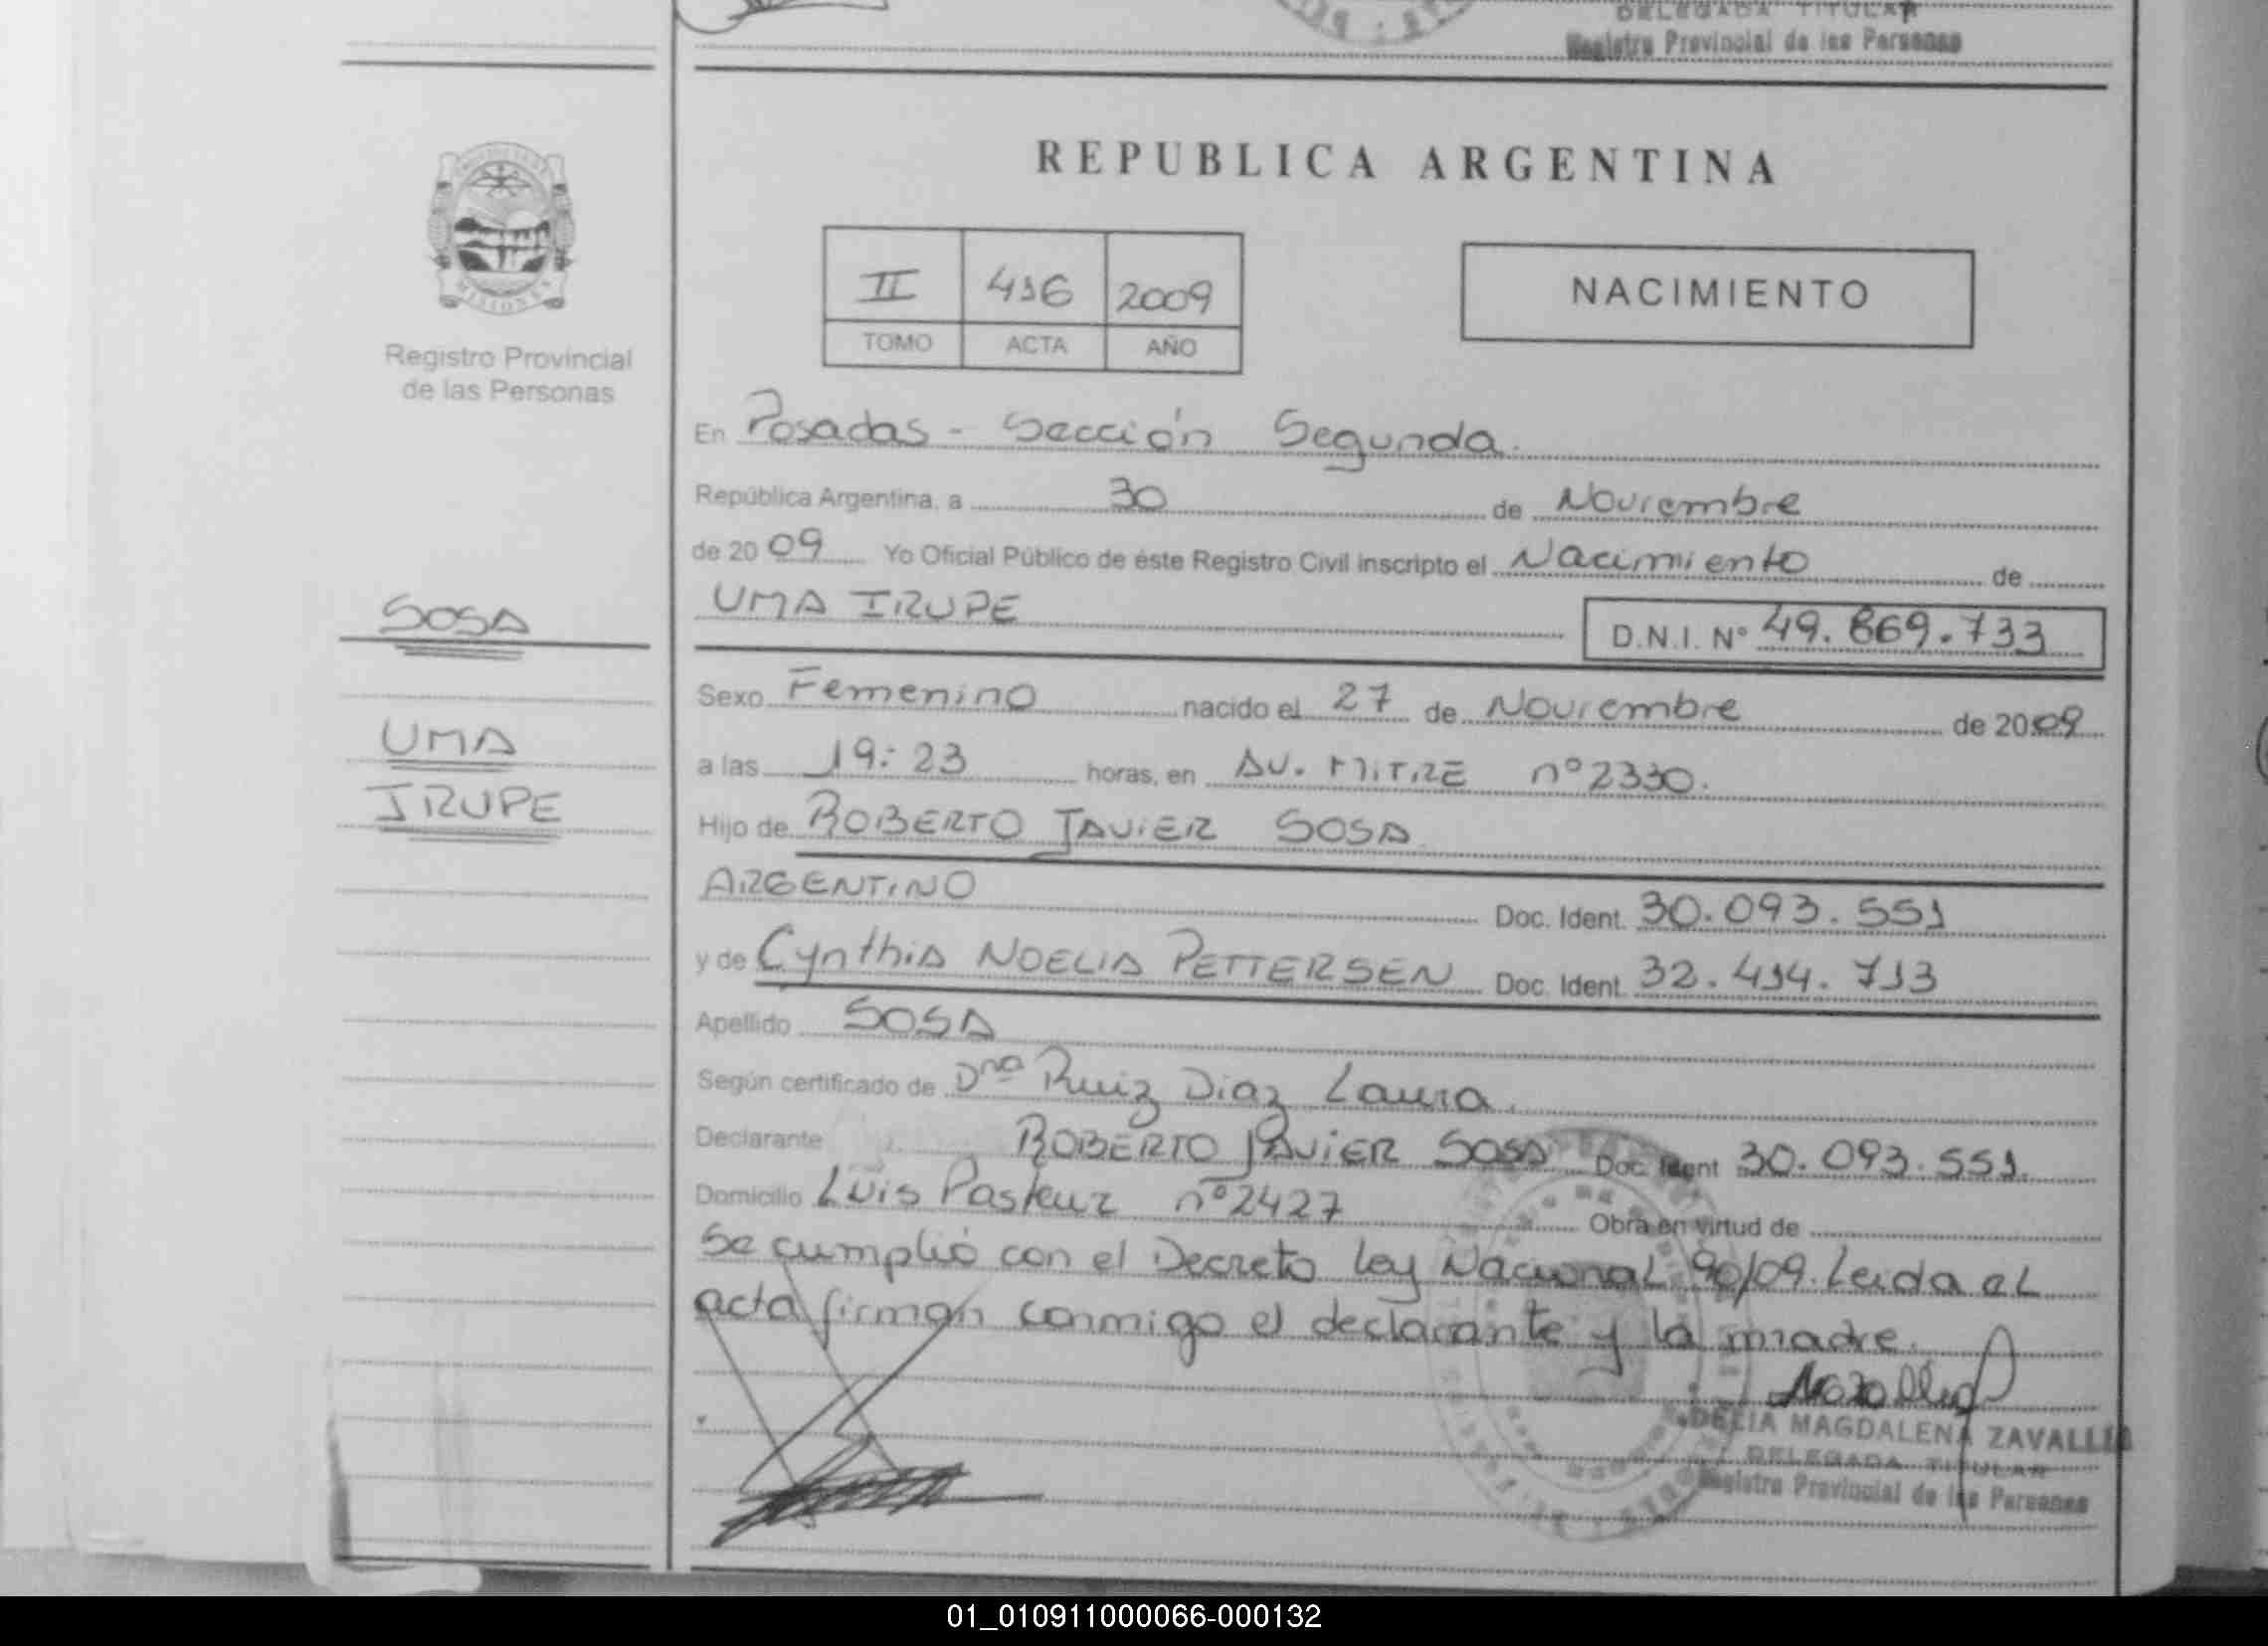 DELEGADA TITULAR
Registro Provincial de las Personas
MISIONES
Registro Provincial
de las Personas
REPUBLICA ARGENTINA
II 416 2009
TOMO ACTA AÑO
NACIMIENTO
En Posadas - Sección Segunda.
República Argentina, a 30 de Noviembre
de 2009 Yo Oficial Público de éste Registro Civil inscripto el Nacimiento de
UMA IRUPE D.N.I. Nº 49.869.733
SOSA
UMA
IRUPE
Sexo Femenino nacido el 27 de Noviembre de 2009
a las 19:23 horas, en AV. MITRE nº 2330.
Hijo de ROBERTO JAVIER SOSA
ARGENTINO Doc. Ident. 30.093.551
y de Cynthia NOELIA PETTERSEN Doc. Ident. 32.414.713
Apellido SOSA
Según certificado de Dra Ruiz Diaz Laura.
Declarante ROBERTO JAVIER SOSA Doc. Ident 30.093.551.
Domicilio Luis Pasteur nº 2427 Obra en virtud de
Se cumplió con el Decreto Ley Nacional 90/09. Leida el
acta firman conmigo el declarante y la madre.
DELIA MAGDALENA ZAVALLIA
DELEGADA TITULAR
Registro Provincial de las Personas
01_010911000066-000132